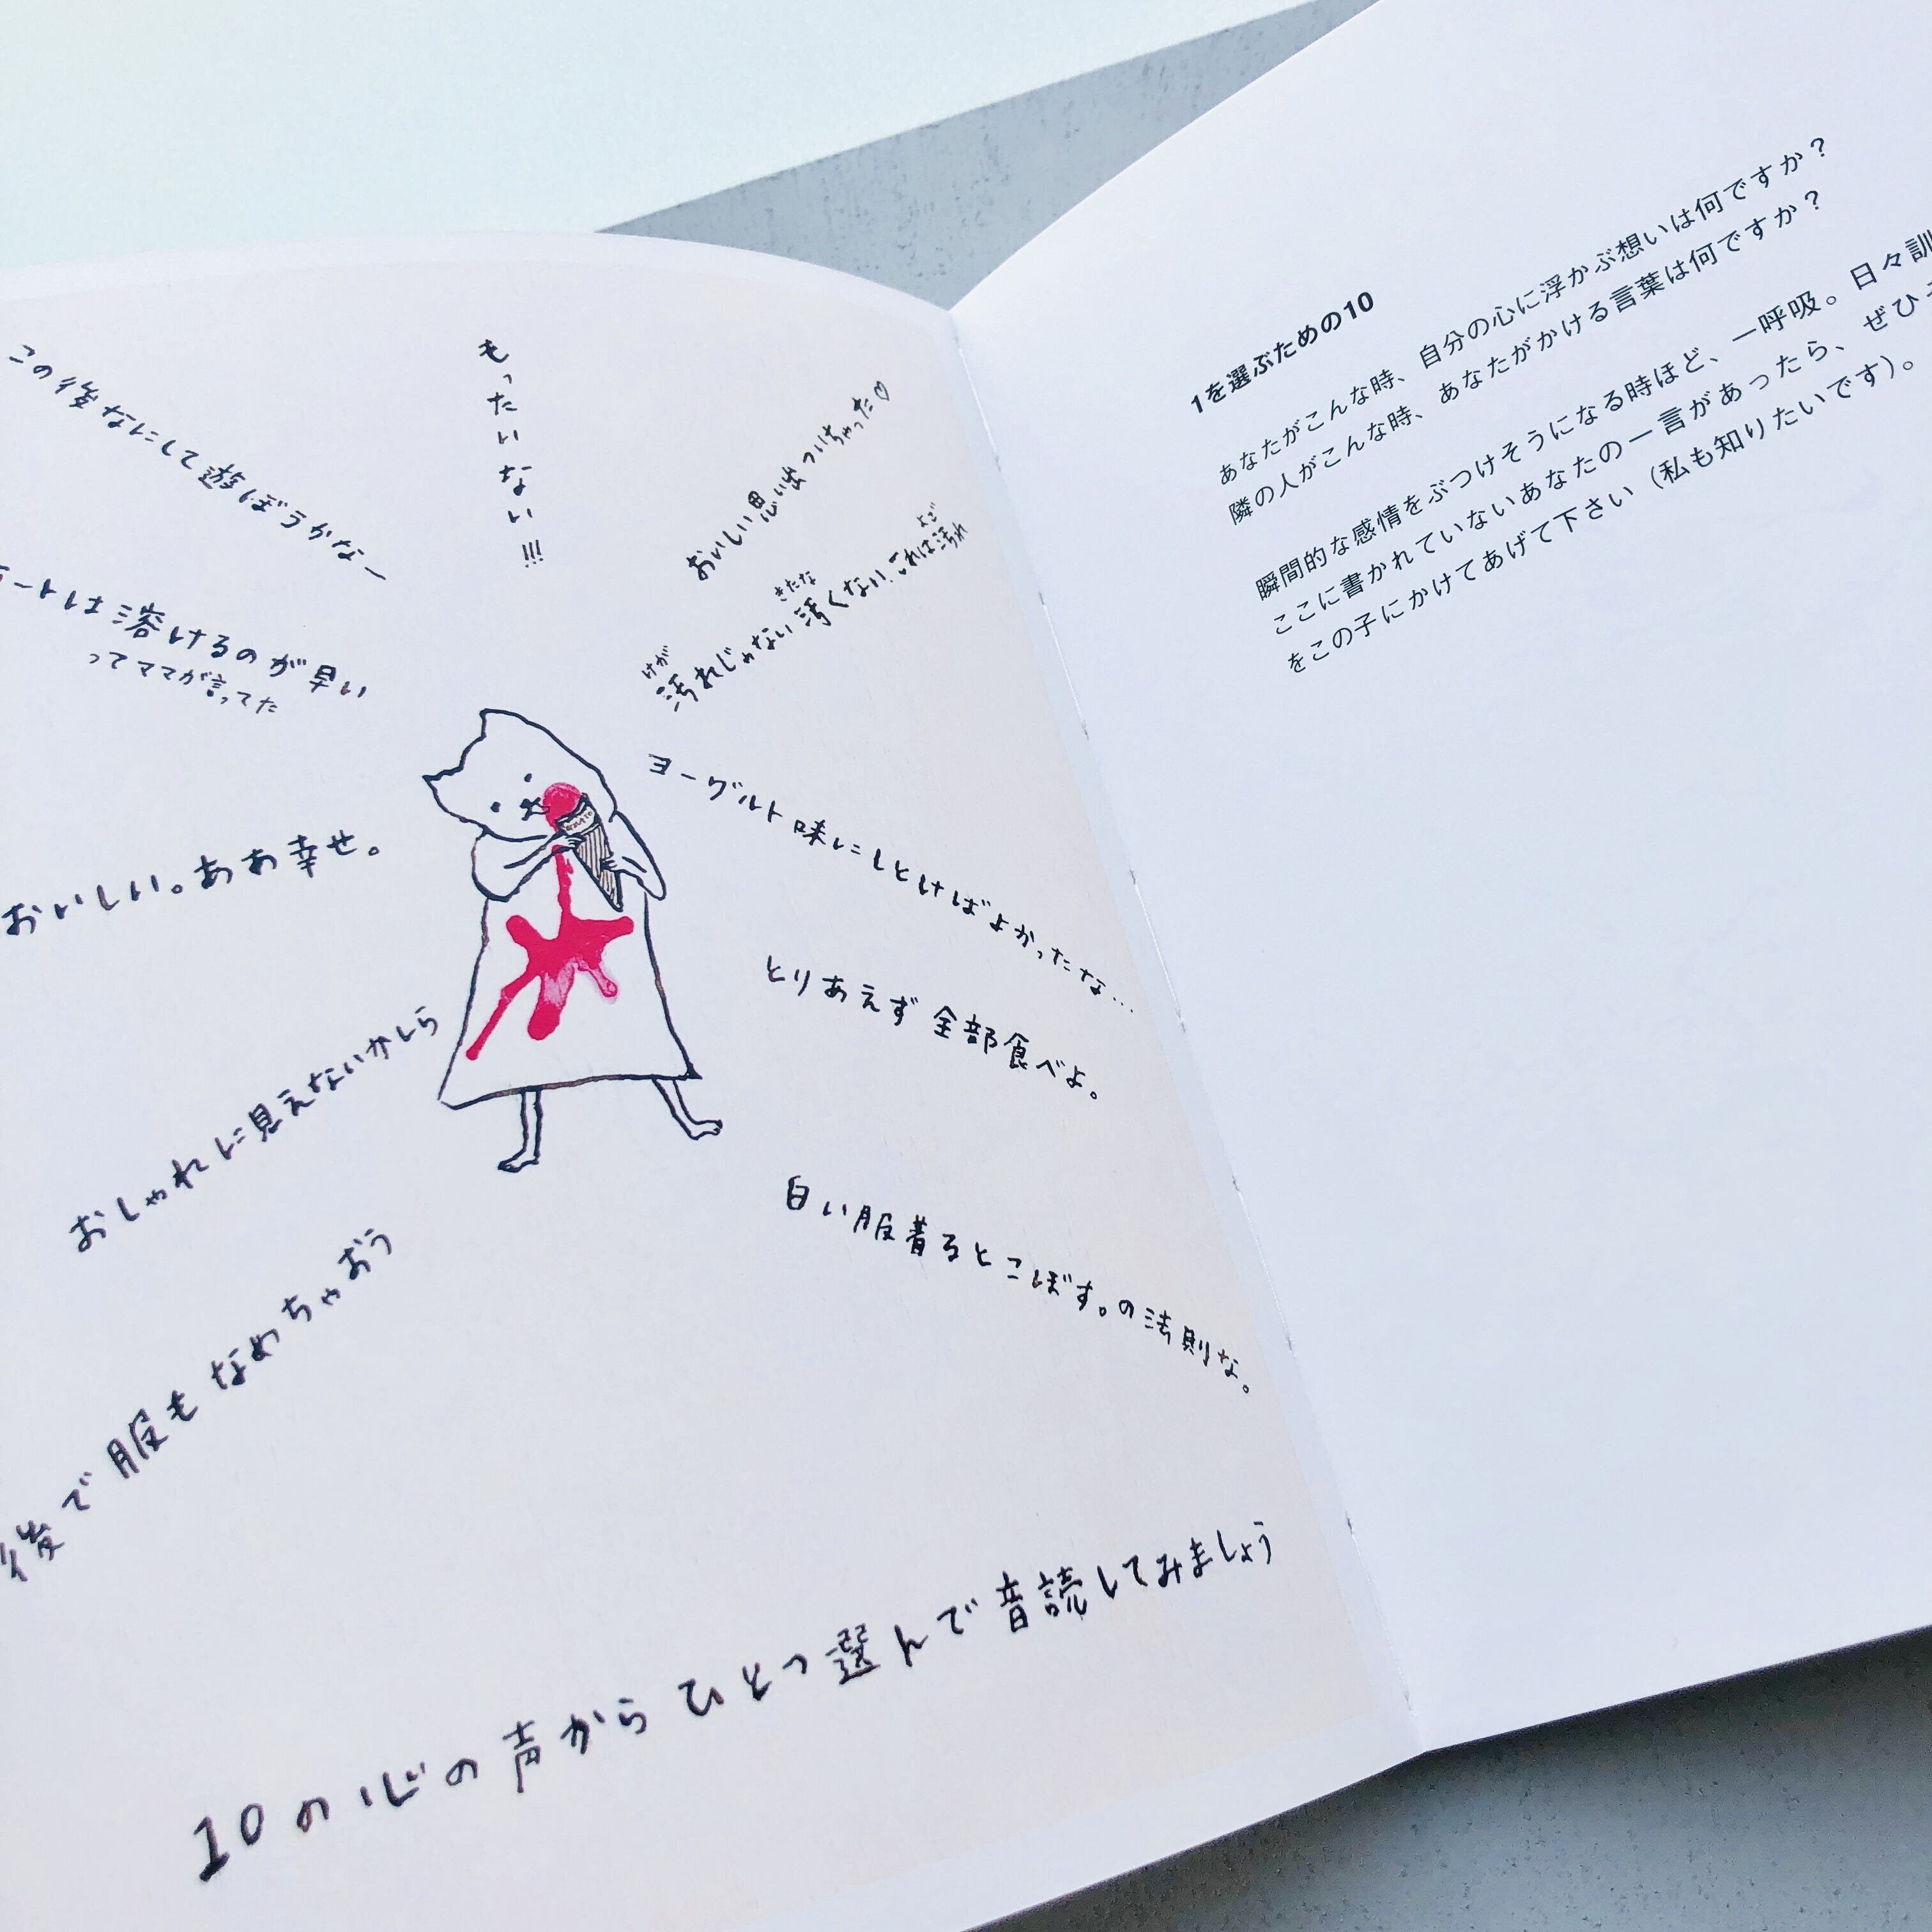 もったいない!!!
この後なにして遊ぼうかなー
ートは溶けるのが早い
ってママが言ってた
おいしい。ああ幸せ。
おしゃれに見えないかしら
後で服もなめちゃおう
おいしい思い出ついちゃった♡
汚れじゃない汚くない、これは汚れ
けが
きたな
よご
ヨーグルト味にしとけばよかったな…
とりあえず全部食べよ。
白い服着るとこぼす。の法則な。
10の心の声からひとつ選んで音読してみましょう
1を選ぶための10
あなたがこんな時、自分の心に浮かぶ想いは何ですか?
隣の人がこんな時、あなたがかける言葉は何ですか?
瞬間的な感情をぶつけそうになる時ほど、一呼吸。日々訓
ここに書かれていないあなたの一言があったら、ぜひ
をこの子にかけてあげて下さい(私も知りたいです)。